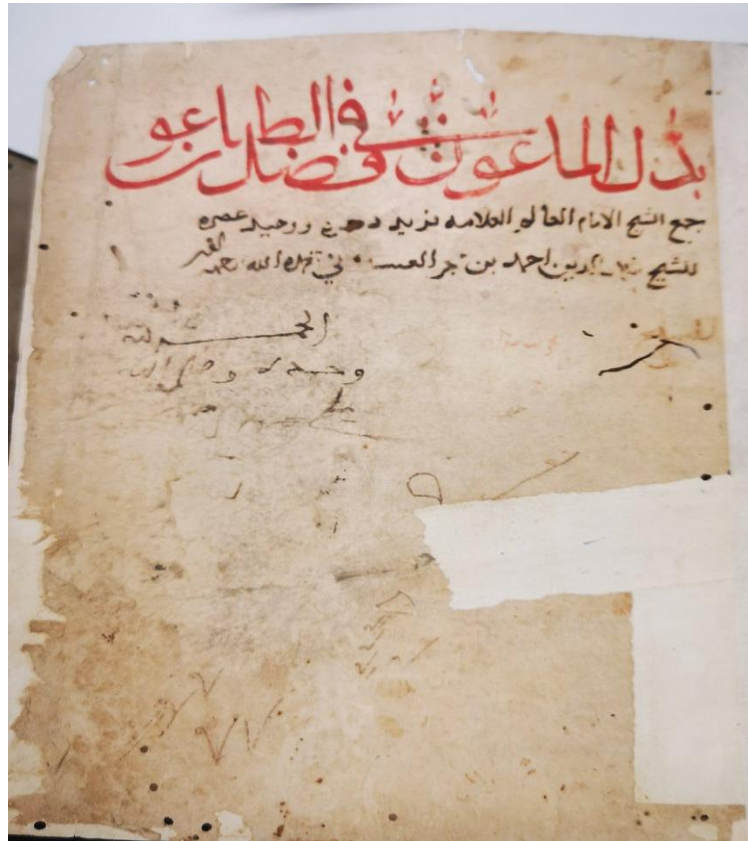 بذل الماعون في فضل الطاعون
جمع الشيخ الامام العالم العلامه فريد دهره ووحيد عصره
للشيخ شهاب الدين احمد بن حجر العسقلاني تغمده الله
الحمد لله
وحده وصلى الله
على